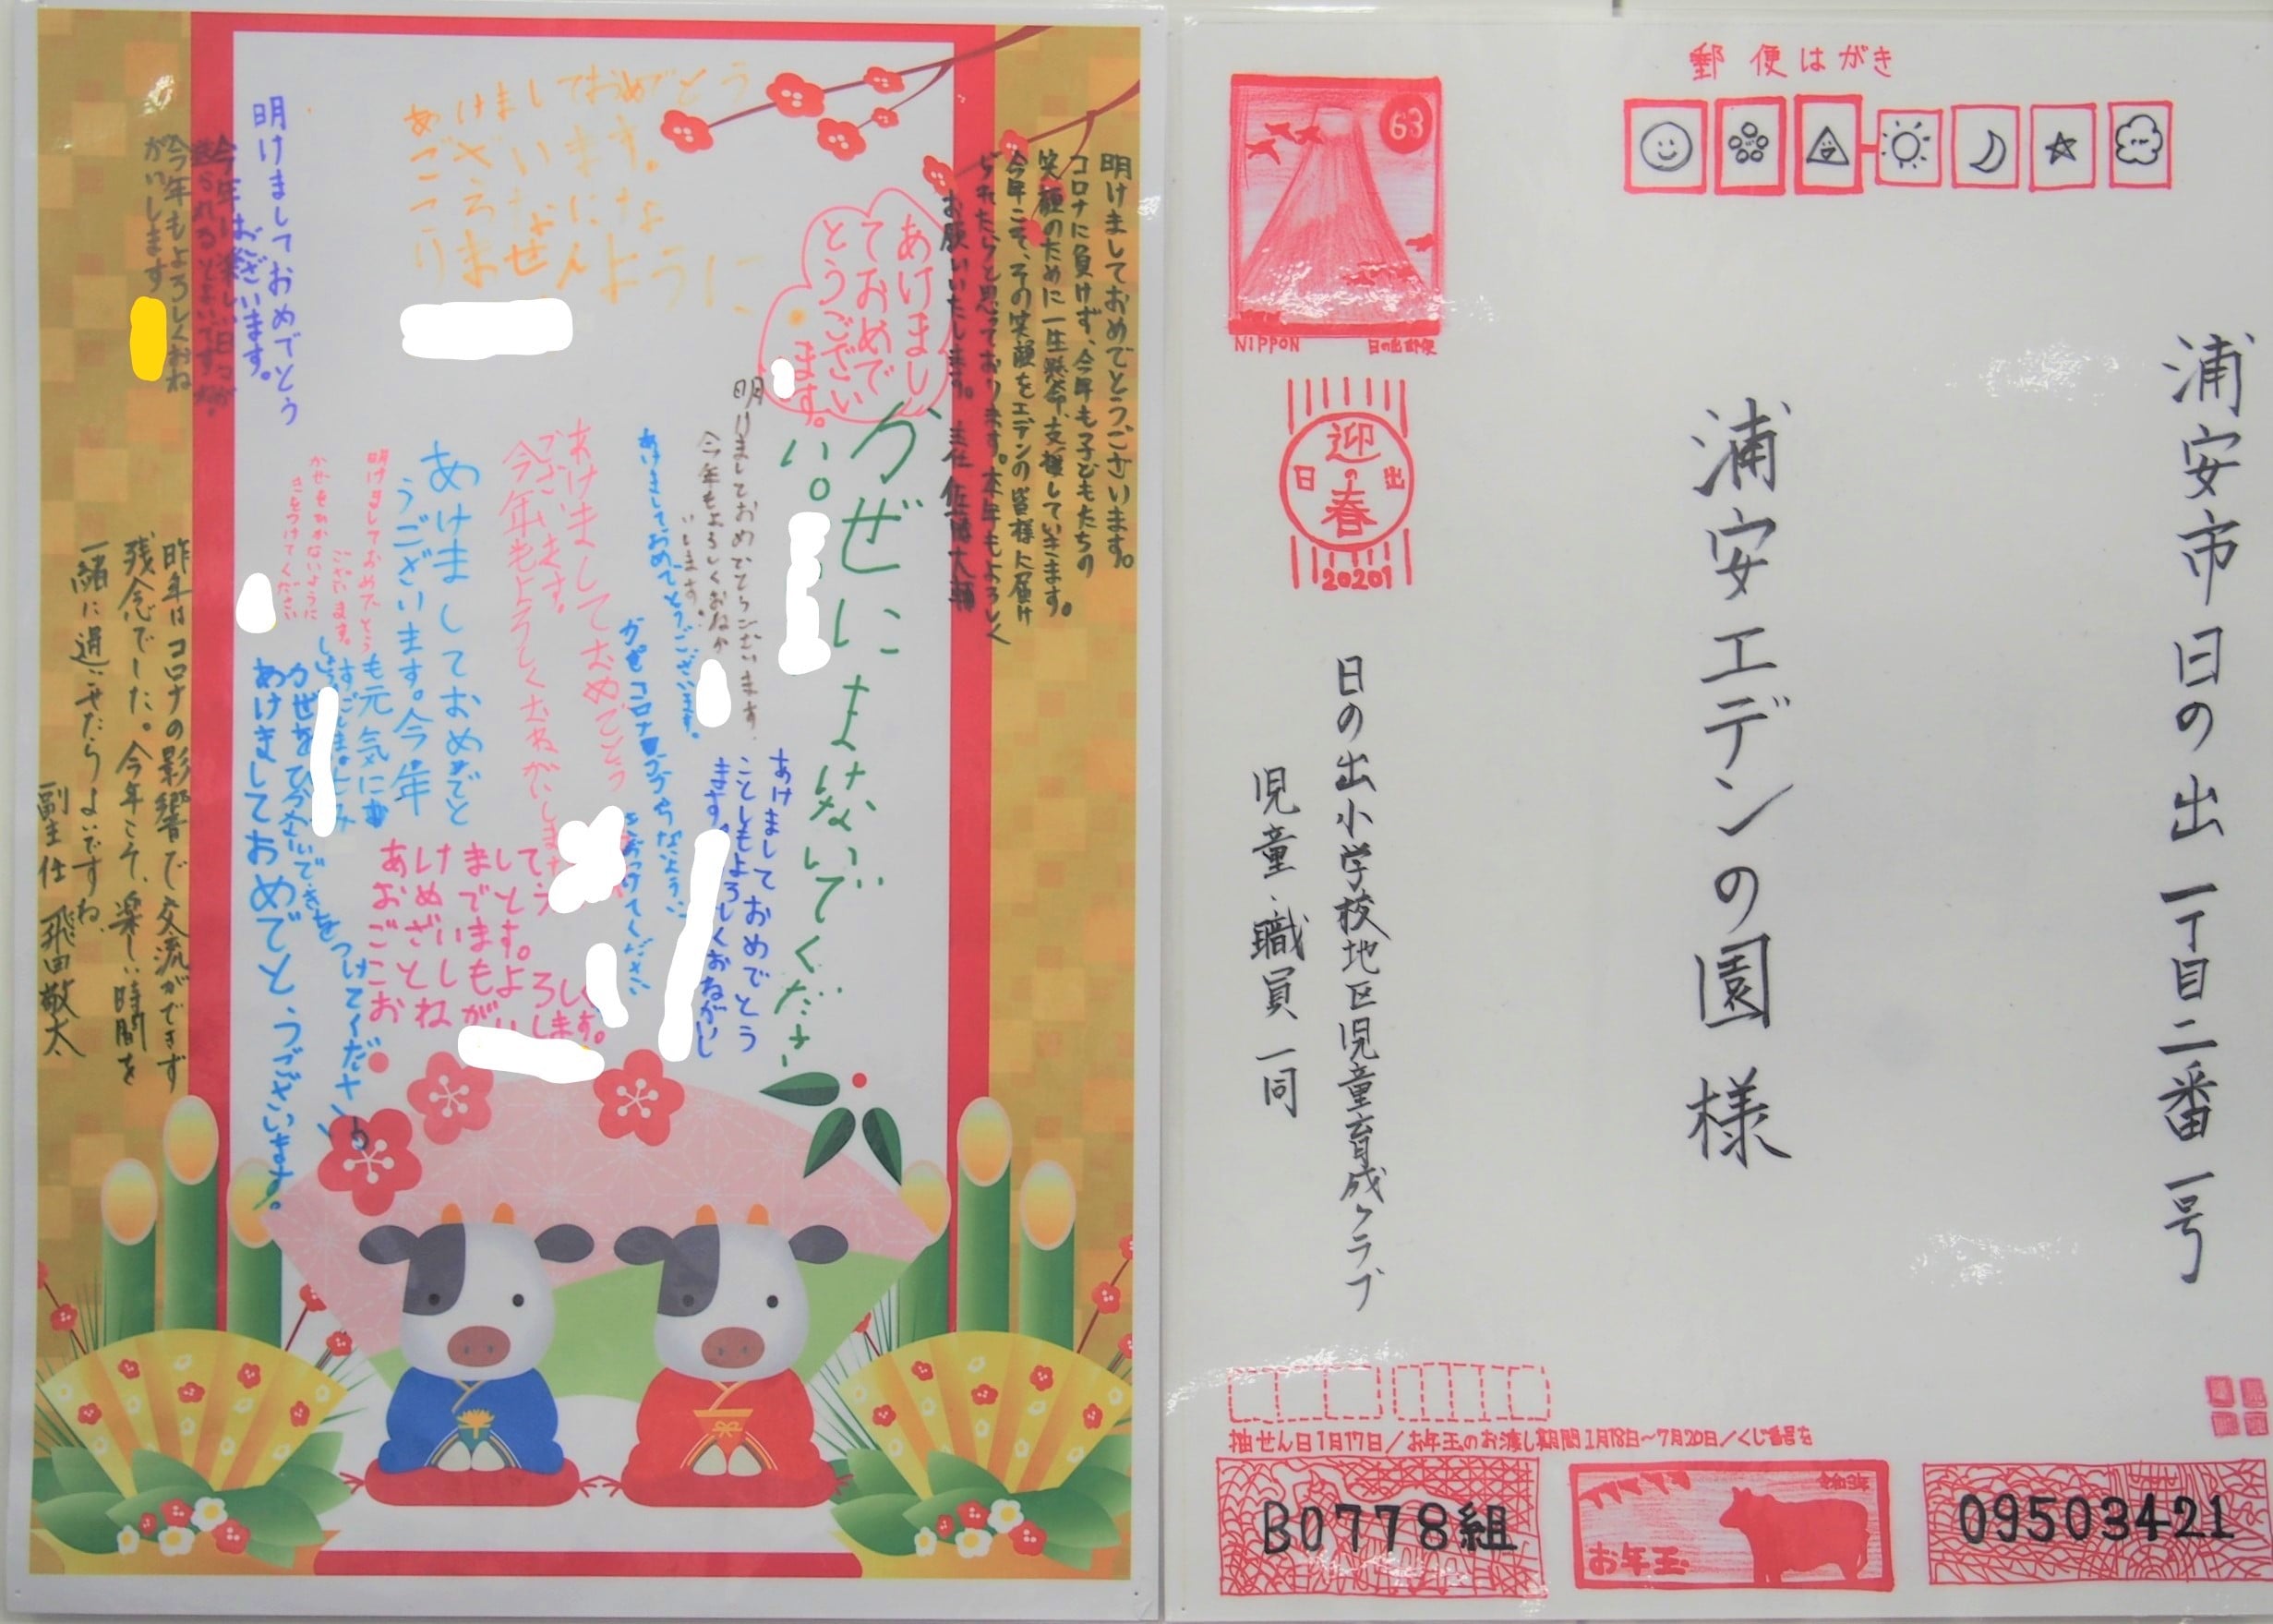 明けましておめでとうございます。
コロナに負けず、今年も子どもたちの
笑顔のために一生懸命、支援していきます。
今年こそ、その笑顔をエデンの皆様に届け
られたらと思っております。本年もよろしく
お願いいたします。
あけまして
おめでとう
ございます。
ころなにな
りませんように
あけまし
ておめで
とうござい
ます。
明けましておめでとう
ございます。
今年は
今年もよろしくおね
がいします
かぜにまけないでくださ
い。
今年もよろしくおねが
あけましておめでとうございます。
かぜやコロナ
きおつけてください
あけましておめでとう
ございます。
今年もよろしくおねがいします
あけましておめでと
うございます。今年
も元気に
明けましておめでとう
ございます。
かぜをひかないように
きをつけてください
あけましておめでとうございます。
かぜをひかないできをつけてください
あけましておめでとう
ことしもよろしくおねがいし
ます。
あけまして
おめでとう
ございます。
ことしもよろしく
おねがいします。
昨年はコロナの影響で交流ができず
残念でした。今年こそ、楽しい時間を
一緒に過ごせたらよいですね。
副主任 飛田敬太
郵便はがき
63
NIPPON
日の出郵便
迎春
日の出
20201
浦安市日の出一丁目二番一号
浦安エデンの園様
日の出小学校地区児童育成クラブ
児童・職員一同
抽せん日1月17日/お年玉のお渡し期間1月18日~7月20日/くじ番号を
B0778組
お年玉
09503421